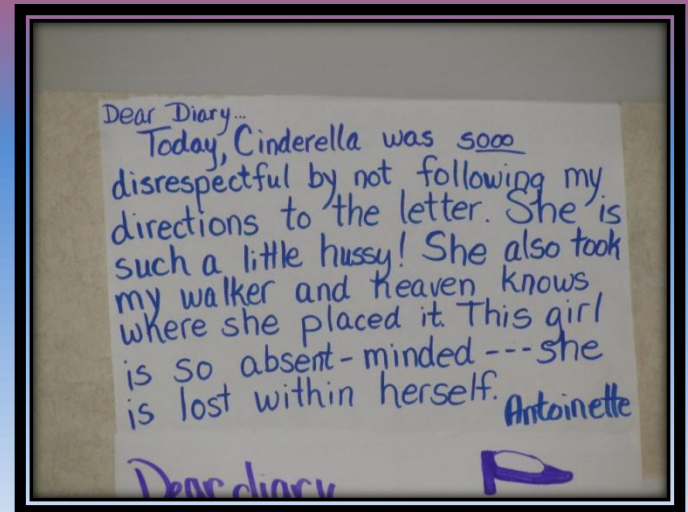 Dear Diary...
Today, Cinderella was sooo
disrespectful by not following my
directions to the letter. She is
such a little hussy! She also took
my walker and heaven knows
where she placed it. This girl
is so absent-minded --- she
is lost within herself.
Antoinette
Dear diary